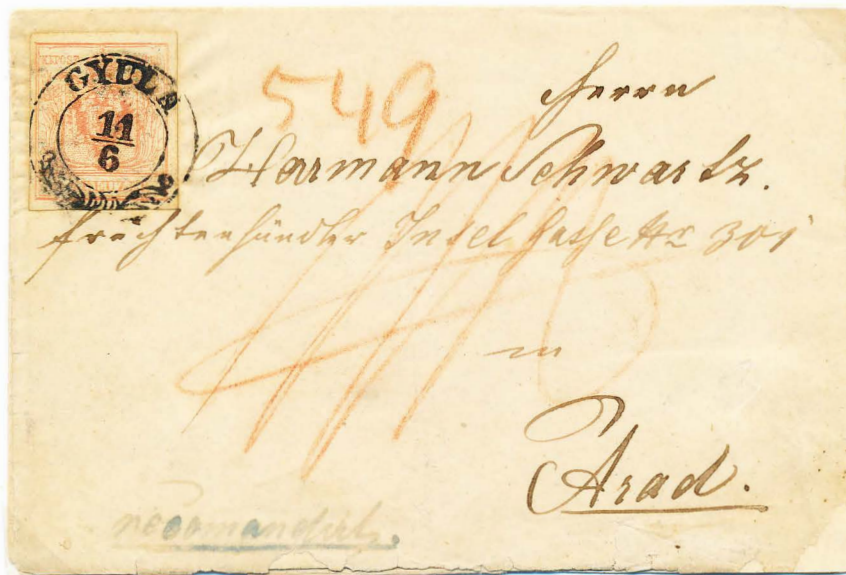 GYULA
11
6
549
Herrn
Harmann Schwartz.
Fruchtenhändler Insel Gasse No 301
in
Arad.
recomandirt.